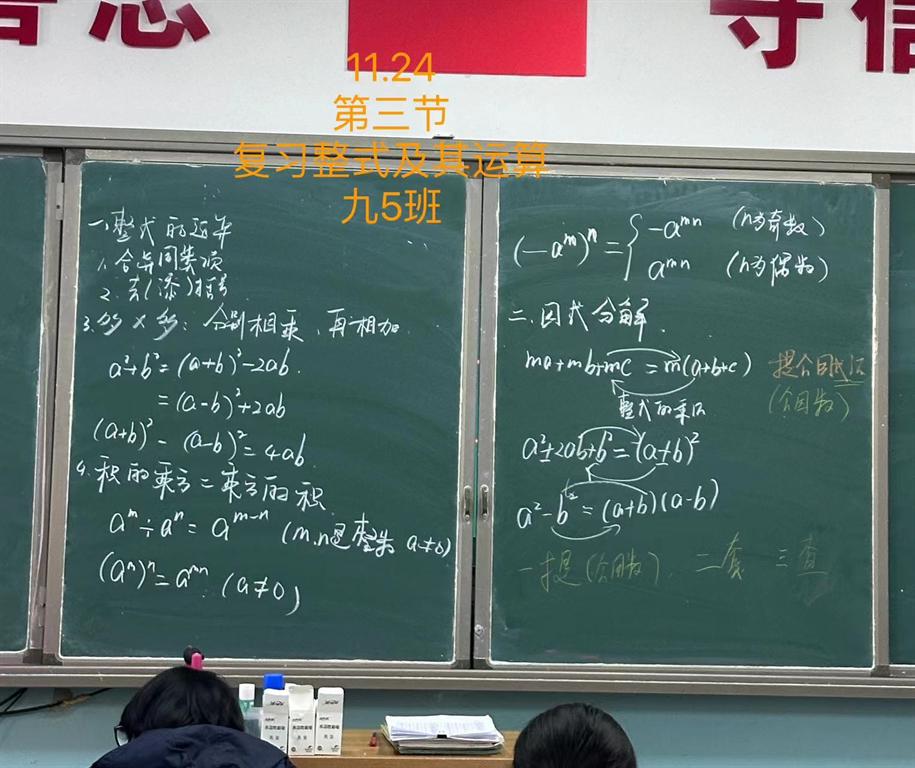 守信
11.24
第三节
复习整式及其运算
九5班
一、整式的运算
1. 合并同类项
2. 去(添)括号
3. 多×多：分别相乘，再相加
a²+b²=(a+b)²-2ab.
=(a-b)²+2ab
(a+b)²-(a-b)²=4ab
4. 积的乘方=乘方的积
aᵐ÷aⁿ=aᵐ⁻ⁿ (m.n是整数 a≠0)
(aᵐ)ⁿ=aᵐⁿ (a≠0)
(-aᵐ)ⁿ={-aᵐⁿ (n为奇数)
aᵐⁿ (n为偶数)
二、因式分解
ma+mb+mc=m(a+b+c) 提公因式法
整式的乘法 (公因数)
a²±2ab+b²=(a±b)²
a²-b²=(a+b)(a-b)
一提(公因数)，二套 三查